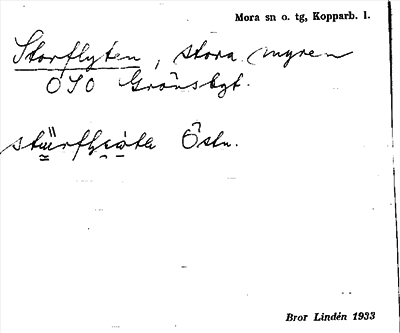 Mora sn o. tg, Kopparb. l.
Storflyten, stora myren
OSO Gränsbgt.
Östn.
Bror Lindén 1933